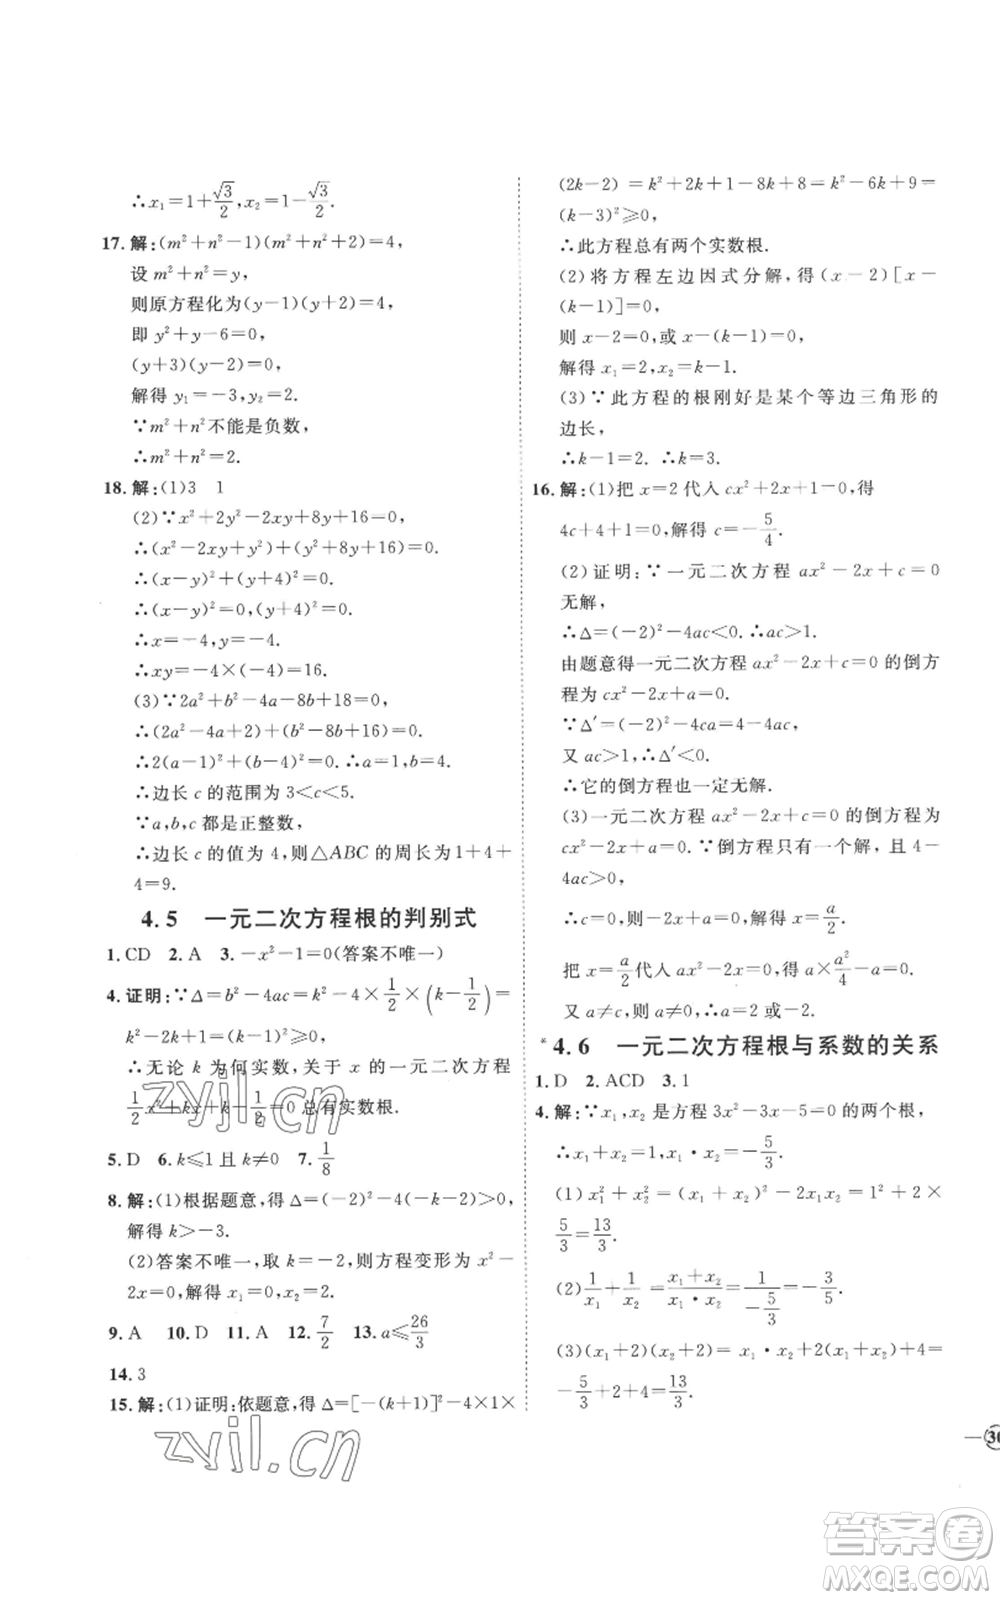 ∴x₁=1+√3/2, x₂=1-√3/2.
17.解:(m²+n²-1)(m²+n²+2)=4,
设 m²+n²=y,
则原方程化为(y-1)(y+2)=4,
即 y²+y-6=0,
(y+3)(y-2)=0,
解得 y₁=-3,y₂=2.
∵m²+n²不能是负数,
∴m²+n²=2.
18.解:(1)3 1
(2)∵x²+2y²-2xy+8y+16=0,
∴(x²-2xy+y²)+(y²+8y+16)=0.
∴(x-y)²+(y+4)²=0.
∴(x-y)²=0,(y+4)²=0.
∴x=-4,y=-4.
∴xy=-4×(-4)=16.
(3)∵2a²+b²-4a-8b+18=0,
∴(2a²-4a+2)+(b²-8b+16)=0.
∴2(a-1)²+(b-4)²=0.∴a=1,b=4.
∴边长 c 的范围为 3<c<5.
∵a,b,c 都是正整数,
∴边长 c 的值为 4,则△ABC 的周长为1+4+
4=9.
4.5 一元二次方程根的判别式
1.CD 2.A 3.-x²-1=0(答案不唯一)
4.证明:∵Δ=b²-4ac=k²-4×1/2×(k-1/2)=
k²-2k+1=(k-1)²≥0,
∴无论 k 为何实数,关于 x 的一元二次方程
1/2x²+kx+k-1/2=0 总有实数根.
5.D 6.k≤1 且 k≠0 7.1/8
8.解:(1)根据题意,得 Δ=(-2)²-4(-k-2)>0,
解得 k>-3.
(2)答案不唯一,取 k=-2,则方程变形为 x²-
2x=0,解得 x₁=0,x₂=2.
9.A 10.D 11.A 12.7/2 13.a≤26/3
14.3
15.解:(1)证明:依题意,得 Δ=[-(k+1)]²-4×1×
(2k-2)=k²+2k+1-8k+8=k²-6k+9=
(k-3)²≥0,
∴此方程总有两个实数根.
(2)将方程左边因式分解,得(x-2)[x-
(k-1)]=0,
则 x-2=0 或 x-(k-1)=0,
解得 x₁=2,x₂=k-1.
(3)∵此方程的根刚好是某个等边三角形的
边长,
∴k-1=2. ∴k=3.
16.解:(1)把 x=2 代入 cx²+2x+1=0,得
4c+4+1=0,解得 c=-5/4.
(2)证明:∵一元二次方程 ax²-2x+c=0
无解,
∴Δ=(-2)²-4ac<0. ∴ac>1.
由题意得一元二次方程 ax²-2x+c=0 的倒方
程为 cx²-2x+a=0.
∵Δ′=(-2)²-4ca=4-4ac,
又 ac>1,∴Δ′<0.
∴它的倒方程也一定无解.
(3)一元二次方程 ax²-2x+c=0 的倒方程为
cx²-2x+a=0.∵倒方程只有一个解,且 4-
4ac>0,
∴c=0,即-2x+a=0,解得 x=a/2.
把 x=a/2代入 ax²-2x=0,得 a×a²/4-a=0,
又∵a≠0,则 a≠0,∴a=2 或 a=-2.
*4.6 一元二次方程根与系数的关系
1.D 2.ACD 3.1
4.解:∵x₁,x₂ 是方程 3x²-3x-5=0 的两个根,
∴x₁+x₂=1,x₁·x₂=-5/3.
(1)x₁²+x₂²=(x₁+x₂)²-2x₁x₂=1²+2×
5/3=13/3.
(2)1/x₁+1/x₂=(x₁+x₂)/(x₁x₂)=1/(-5/3)=-3/5.
(3)(x₁+2)(x₂+2)=x₁·x₂+2(x₁+x₂)+4=
-5/3+2+4=13/3.
zyjl.cn
zyjl.cn
答案卷
MXQE.COM